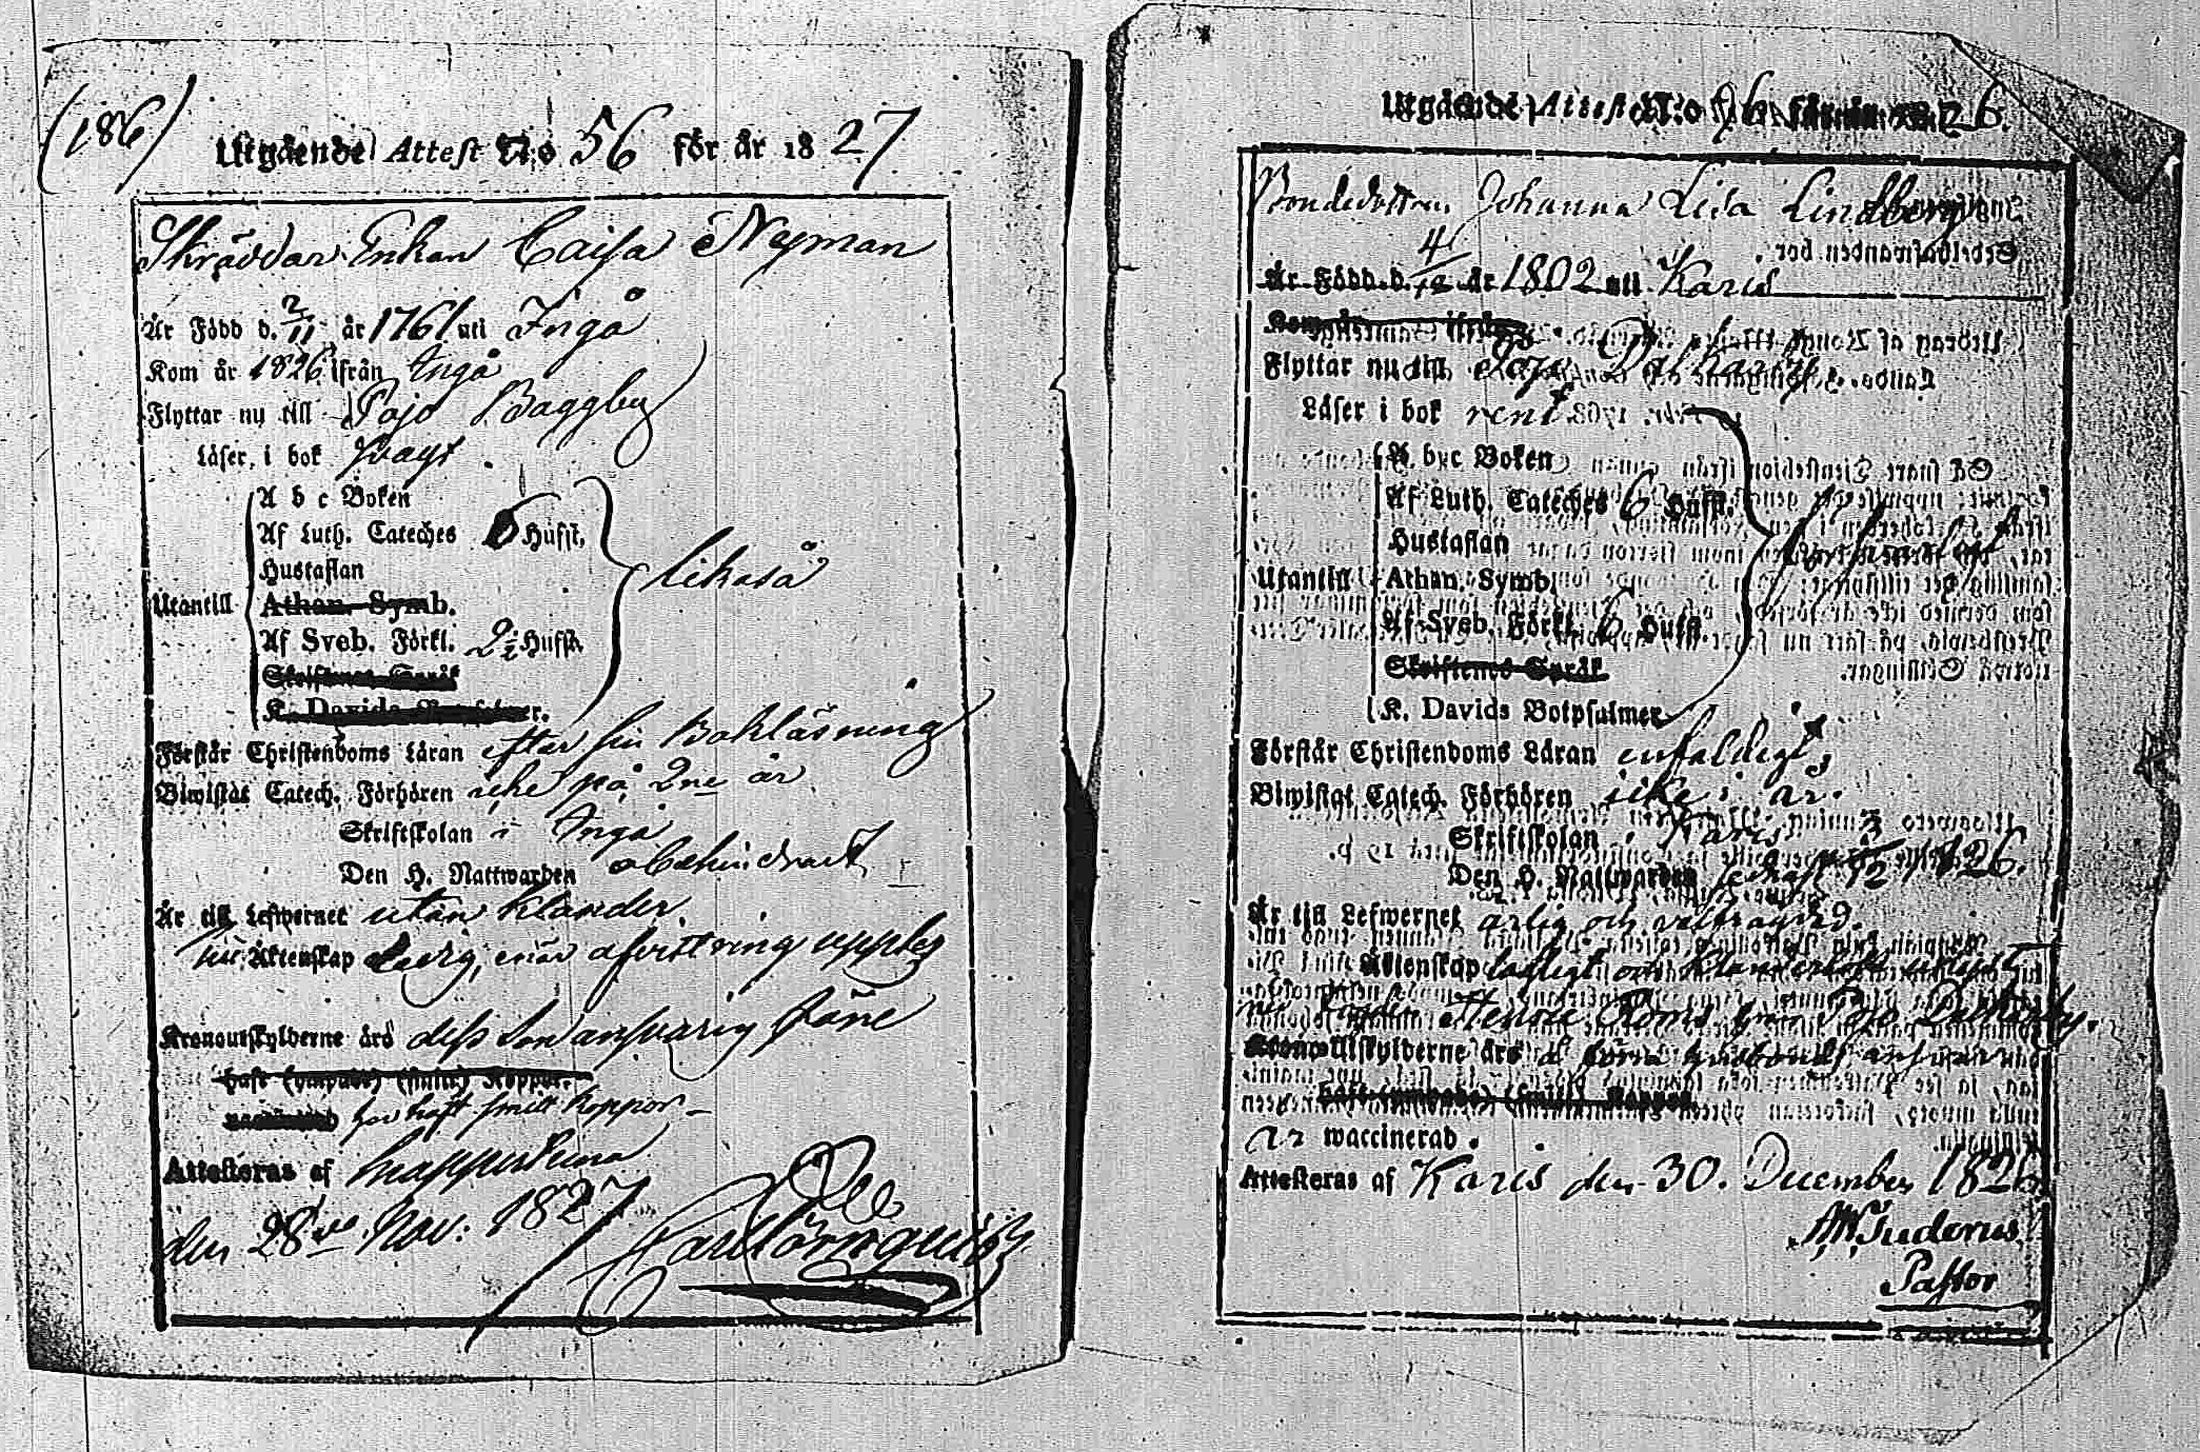 (186)
Utgående Attest N:o 56 för år 1827
Skräddar Enkan Caisa Nyman
Är Född d. 2/11 år 1761 uti Ingå
Kom år 1826 ifrån Ingå
Flyttar nu till Pojo Baggby
Läser i bok svagt
A b c Boken
Af Luth. Cateches 6 Hufst.
Hustaflan
Utantill Athan. Symb.
Af Sveb. Förkl. 2 1/2 Hufst.
Skriftenes Språk
K. Davids Botpsalmer.
likaså
Förstår Christendoms Läran efter sin Bokläsning
Biwistat Catech. Förhören icke på 2ne år
Skriftskolan i Ingå
Den H. Nattwarden obehindradt
Är till Lefwernet utan klander.
till Äktenskap Ledig, när afvittring upptes
Kronoutskylderne äro dess Son ansvarig före
haft (ympade) (smitt) Koppor.
har haft smitt koppor
Attesteras af Snappertuna
den 28de Nov. 1827
Carl Törnquist
Utgående Attest N:o 26.
Bondedottren Johanna Lisa Lindberg
Är Född d. 4/12 år 1802 uti Karis
Flyttar nu till Pojo Dalkarby
Läser i bok rent
A. b. c Boken
Af Luth. Cateches 6 Hufst.
Hustaflan
Utantill Athan. Symb.
Af Sveb. Förkl. 6 Hufst.
Skriftenes Språk
K. Davids Botpsalmer
Förstår Christendoms Läran enfaldigt
Biwistat Catech. Förhören icke i år.
Skriftskolan i Karis
Den H. Nattwarden sednast 3/12 1826.
Är till Lefwernet ärlig och välfrägdad.
Äktenskap lagligt och klanderlöst
Pojo Dalkarby.
Kronoutskylderne äro
haft (ympade) (smitt) Koppor
är waccinerad.
Attesteras af Karis den 30. December 1826
Pastor